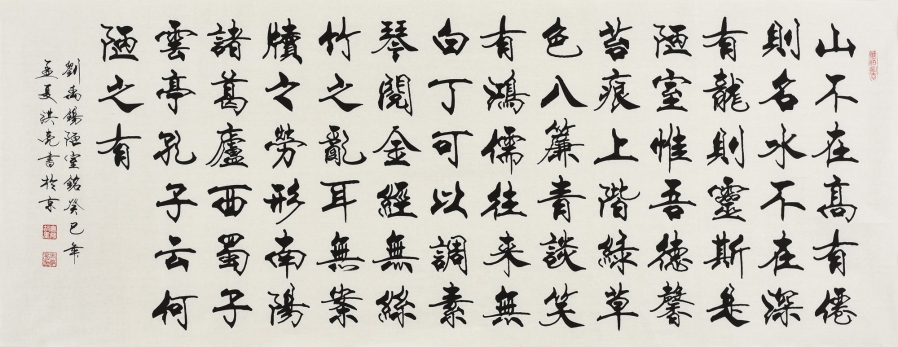 山不在髙有僊
則名水不在深
有龍則靈斯是
陋室惟吾德馨
苔痕上階綠草
色入簾青談笑
有鴻儒往来無
白丁可以調素
琴閱金經無絲
竹之亂耳無案
牘之勞形南陽
諸葛廬西蜀子
雲亭孔子云何
陋之有
劉禹錫陋室銘癸巳年
孟夏洪亮書於京